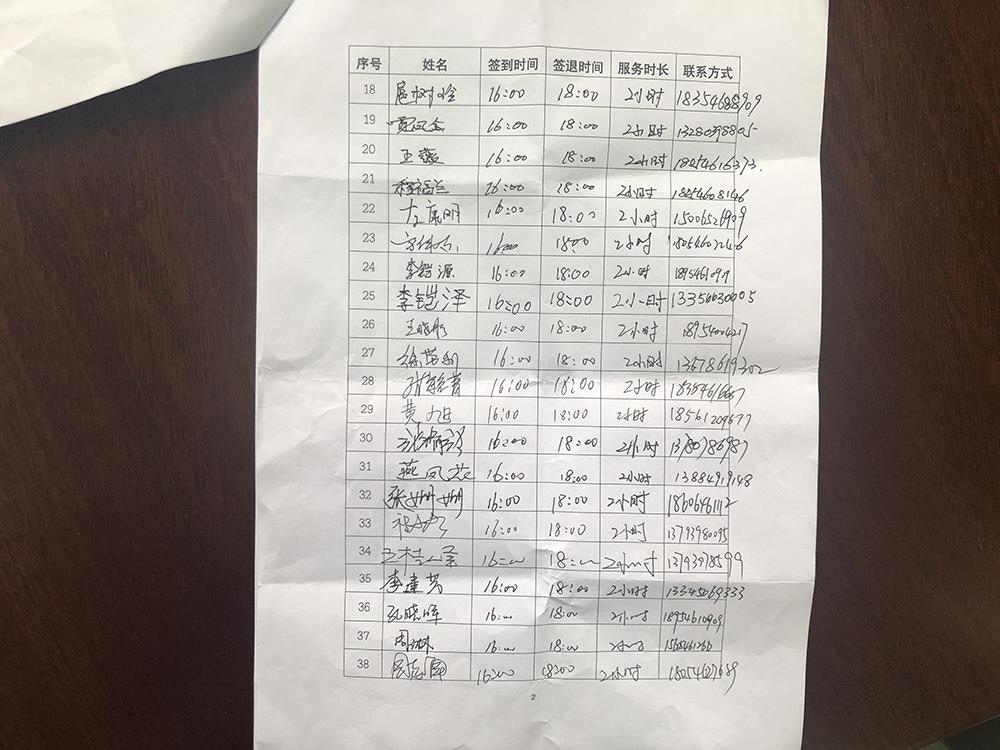 序号 姓名 签到时间 签退时间 服务时长 联系方式
18 16:00 18:00 2小时 18354688909
19 16:00 18:00 2小时 13280398805
20 王 16:00 18:00 2小时 18054616373.
21 程福兰 16:00 18:00 2小时 18854608146
22 左康明 16:00 18:00 2小时 15006526909
23 16:00 18:00 2小时 18054607246
24 李铠源 16:00 18:00 2小时
25 李铠泽 16:00 18:00 2小时 13356630005
26 王晓彤 16:00 18:00 2小时 18954004217
27 16:00 18:00 2小时 13678619302
28 16:00 18:00 2小时
29 黄旭 16:00 18:00 2小时 18561209677
30 16:00 18:00 2小时 13780786987
31 燕凤芝 16:00 18:00 2小时 13884919148
32 张姗姗 16:00 18:00 2小时 18606461112
33 16:00 18:00 2小时 13793980095
34 王桂 16:00 18:00 2小时 13793978599
35 李建芳 16:00 18:00 2小时 13345069333
36 晓晖 16:00 18:00 2小时 18954610909
37 周琳 16:00 18:00 2小时
38 周志国 16:00 18:00 2小时 18054627689
2